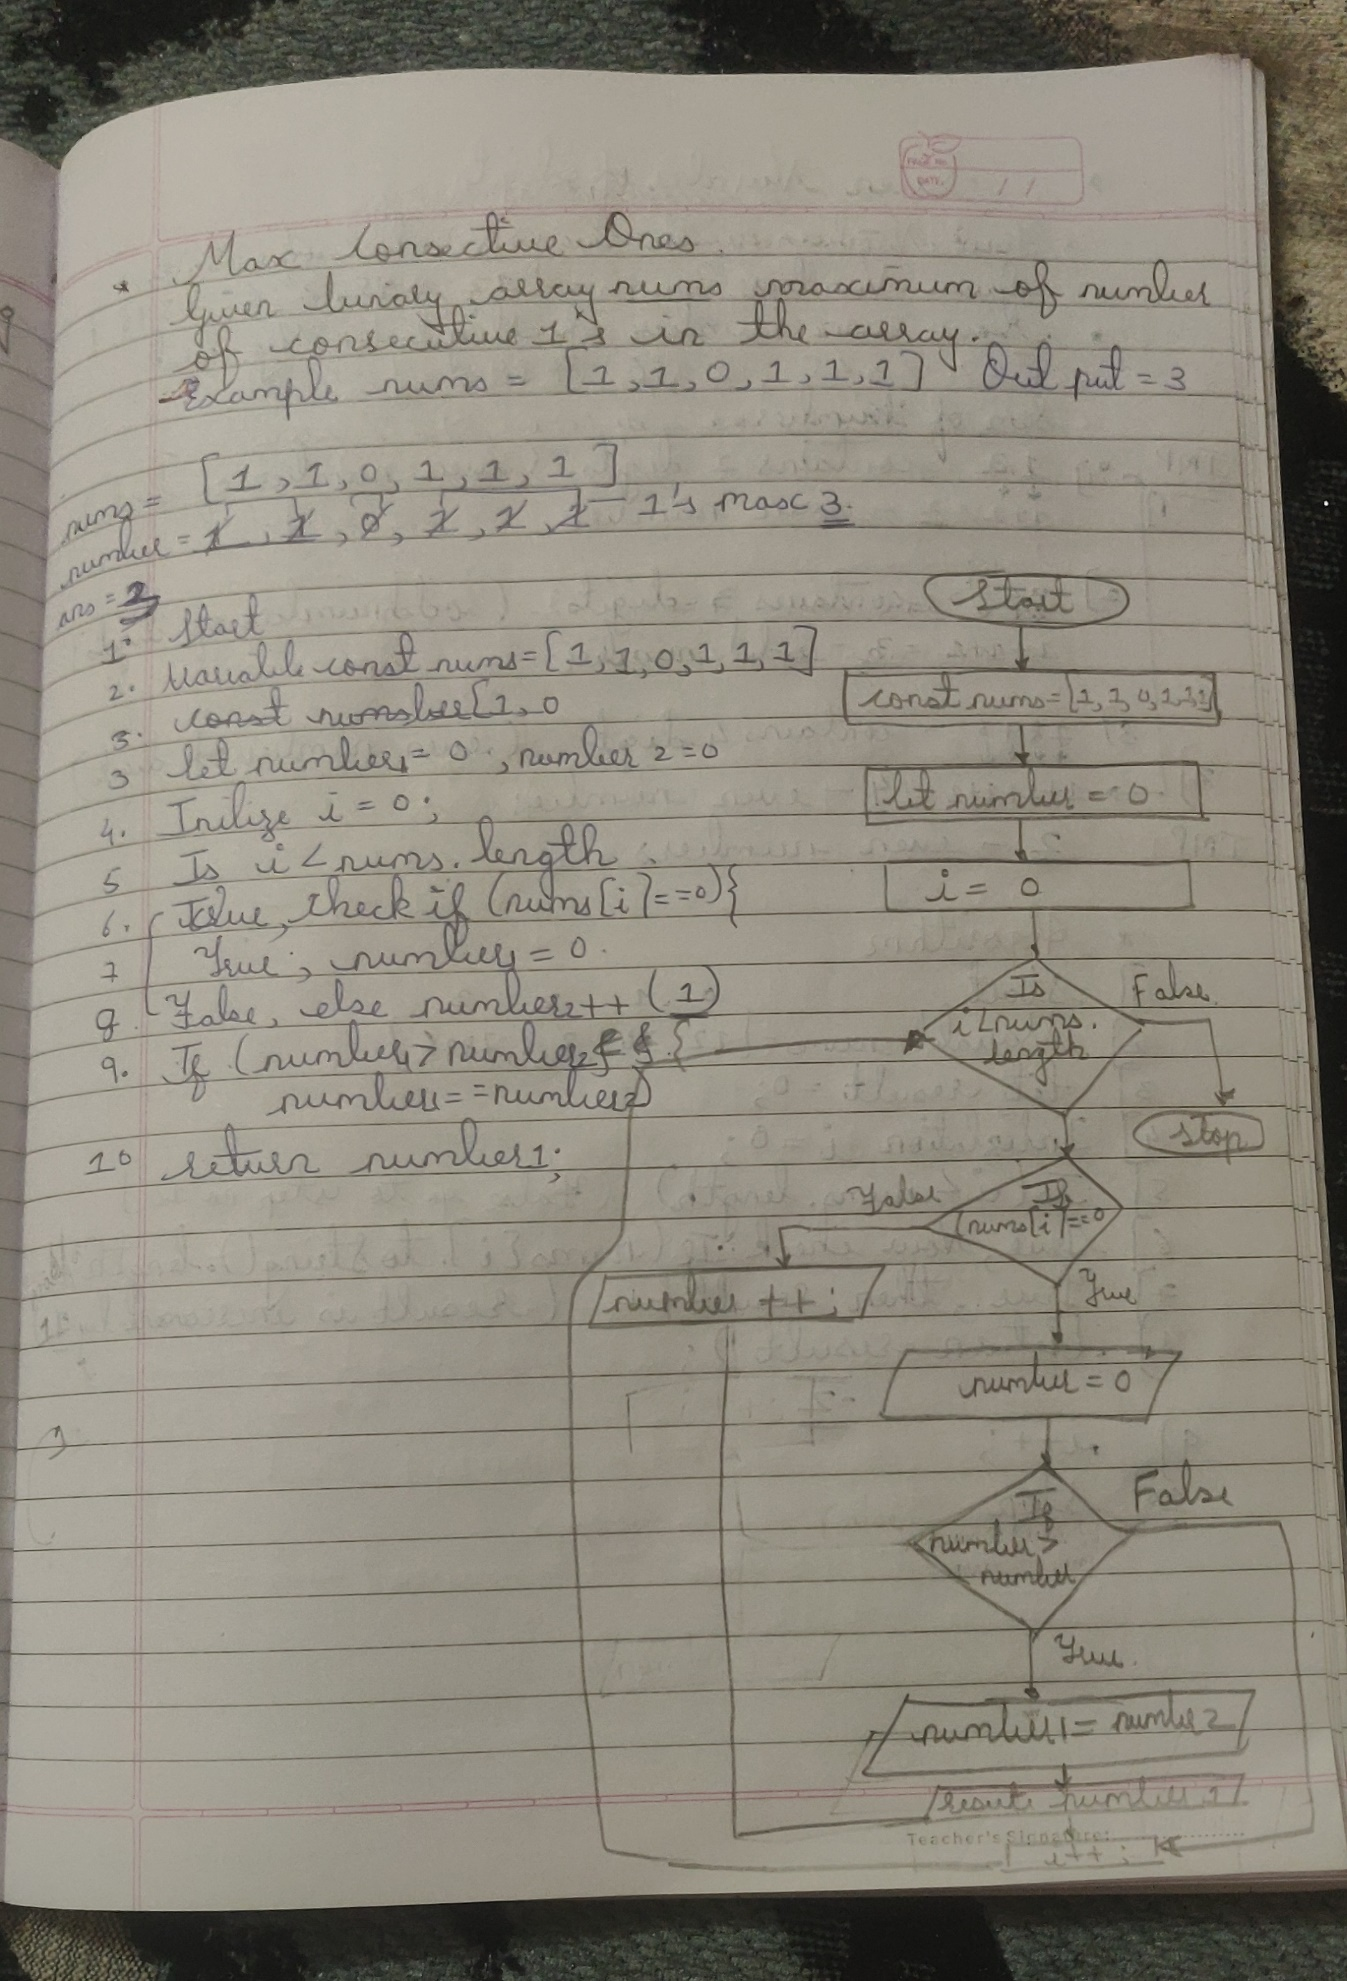 PAGE NO.
DATE: / /
* Max Consective Ones.
Given binary array nums maximum of number
of consecutive 1's in the array.
Example nums = [1,1,0,1,1,1] Out put = 3
nums = [1,1,0,1,1,1]
number = 1,1,0,1,1,1 — 1's max 3.
ans = 2
1. Start
2. Variable const nums=[1,1,0,1,1,1]
3. const number[1,0
3 let number1= 0, number 2 = 0
4. Inilize i = 0;
5 Is i < nums.length
6. True, check if (nums[i]==0){
7 True, number1 = 0.
8. False, else number2++ (1)
9. If (number1 > number2 {
number1 == number2)
10 return number1;
Start
const nums=[1,1,0,1,1,1]
let number = 0
i = 0
Is
i<nums.
length
False
stop
If
(nums[i]==0
False
number ++;
True
number = 0
If
number>
number
False
True.
number1= number2
number 1
Teacher's Signature:
i++;